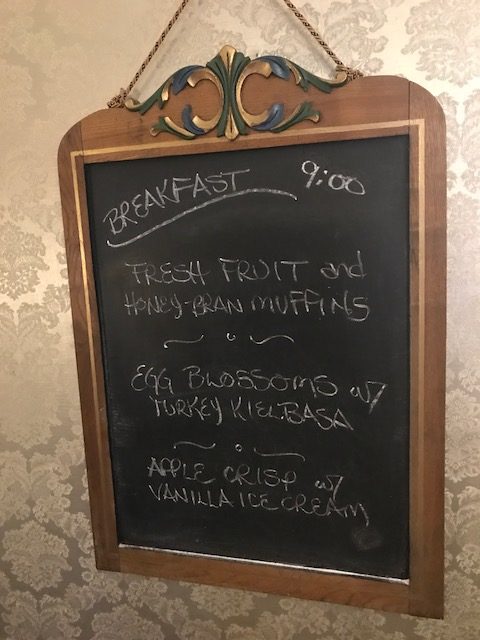 BREAKFAST 9:00
FRESH FRUIT and
HONEY-BRAN MUFFINS
EGG BLOSSOMS w/
TURKEY KIELBASA
APPLE CRISP w/
VANILLA ICE CREAM